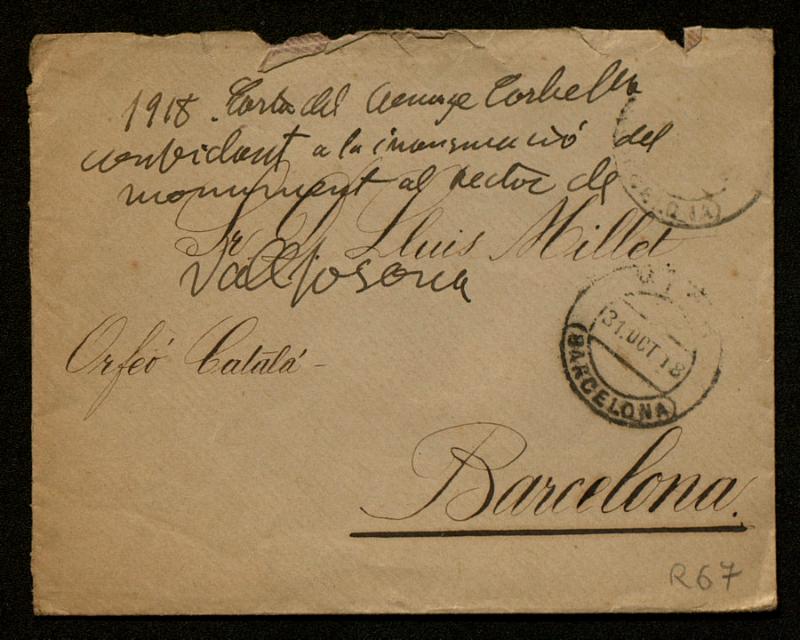 1918. Carta del canonge Corbella
convidant a la inauguració del
monument al rector de
Sr. D. Lluis Millet
Vallfogona
Orfeó Català -
31.OCT.18
BARCELONA
Barcelona.
R67